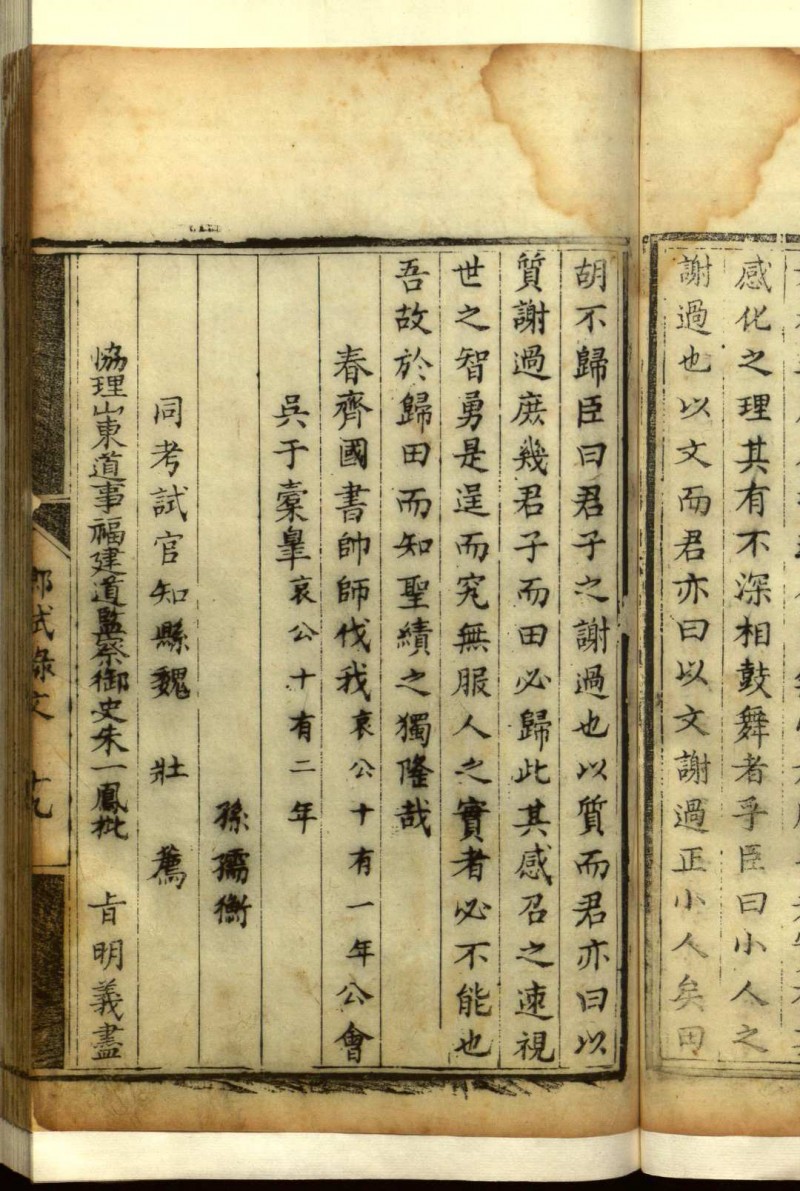 感化之理其有不深相鼓舞者乎臣曰小人之
謝過也以文而君亦曰以文謝過正小人矣田
胡不歸臣曰君子之謝過也以質而君亦曰以
質謝過庶幾君子而田必歸此其感召之速視
世之智勇是逞而究無服人之實者必不能也
吾故於歸田而知聖績之獨隆哉
春齊國書帥師伐我哀公十有一年公會
吳于橐皐哀公十有二年
孫孺衡
同考試官知縣魏壯薦
恊理山東道事福建道監察御史朱一鳳批 旨明義盡
試錄文 十九